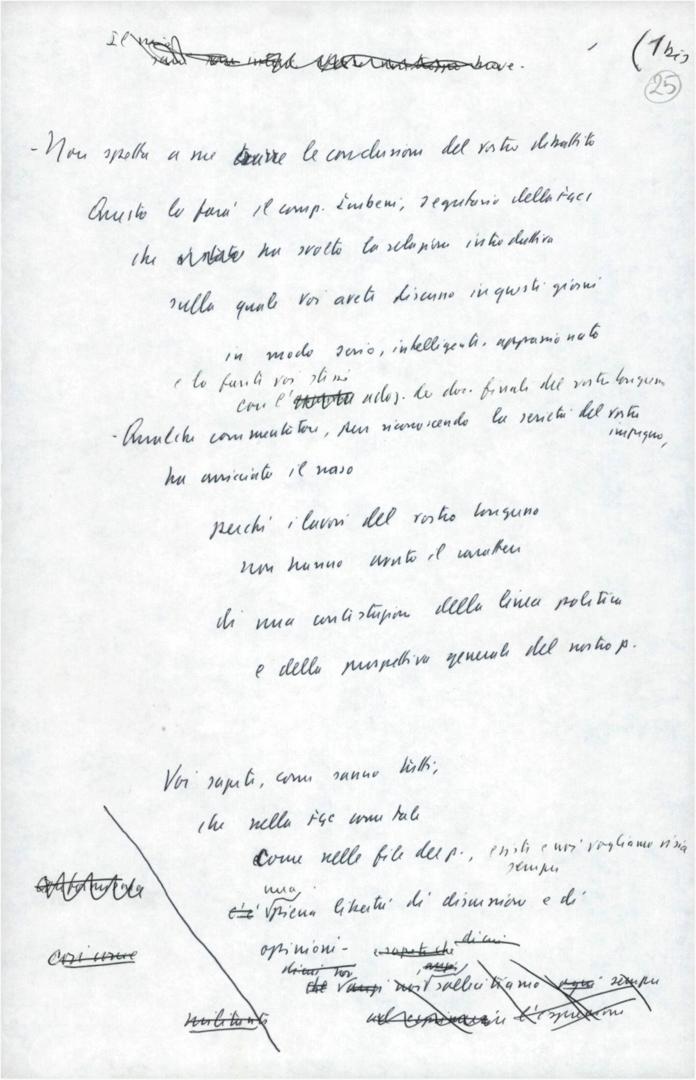 Il mio
breve.
(1 bis
25
- Non spetta a me trarre le conclusioni del vostro dibattito
Questo lo farà il comp. Imbeni, segretario della FGCI
che ha svolto la relazione introduttiva
sulla quale voi avete discusso in questi giorni
in modo serio, intelligente, appassionato
e lo farete voi stessi
con l' adoz. de doc. finale del vostro congresso
- Qualche commentatore, pur riconoscendo la serietà del vostro
impegno,
ha arricciato il naso
perché i lavori del vostro congresso
non hanno avuto il carattere
di una contestazione della linea politica
e della prospettiva generale del nostro p.
Voi sapete, come sanno tutti,
che nella FGC come tale
come nelle file del p., esiste e noi vogliamo vi sia
sempre
una
c'è piena libertà di discussione e di
opinioni -
sapete che diciamo
così come
che anzi noi sollecitiamo ogni sempre
militanti
l'espressione